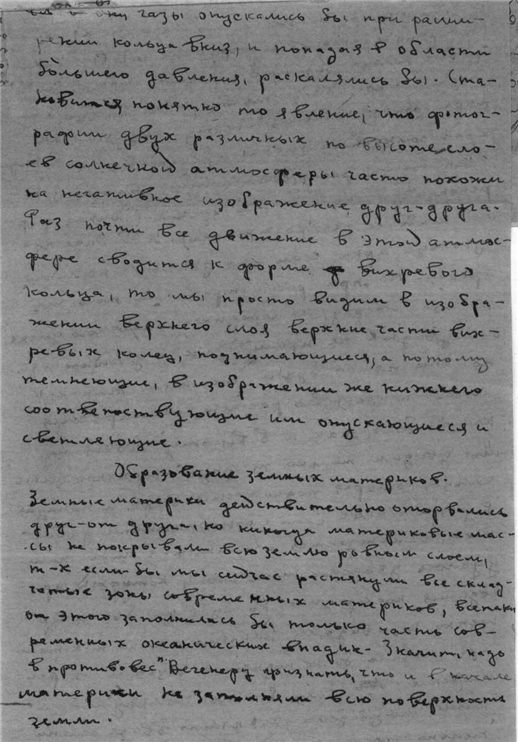 они газы опускались бы при расши-
рении кольца вниз, и попадая в области
большего давления, раскалялись бы. Ста-
новится понятно то явление, что фотог-
рафии двух различных по высоте сло-
ев солнечной атмосферы часто похожи
на негативное изображение друг-друга.
Раз почти все движение в этой атмос-
фере сводится к форме вихревого
кольца, то мы просто видим в изобра-
жении верхнего слоя верхние части вих-
ревых колец, поднимающиеся, а потому
темнеющие, в изображении же нижнего
соответствующие им опускающиеся и
светлеющие.
Образование земных материков.
Земные материки действительно оторвались
друг-от друга, но никогда материковые мас-
сы не покрывали всю землю ровным слоем,
т-к если бы мы сейчас растянули все склад-
чатые зоны современных материков, всетаки
от этого заполнилась бы только часть сов-
ременных океанических впадин. Значит, надо
в противовес Вегенеру признать, что и в начале
материки не заполняли всю поверхность
земли.